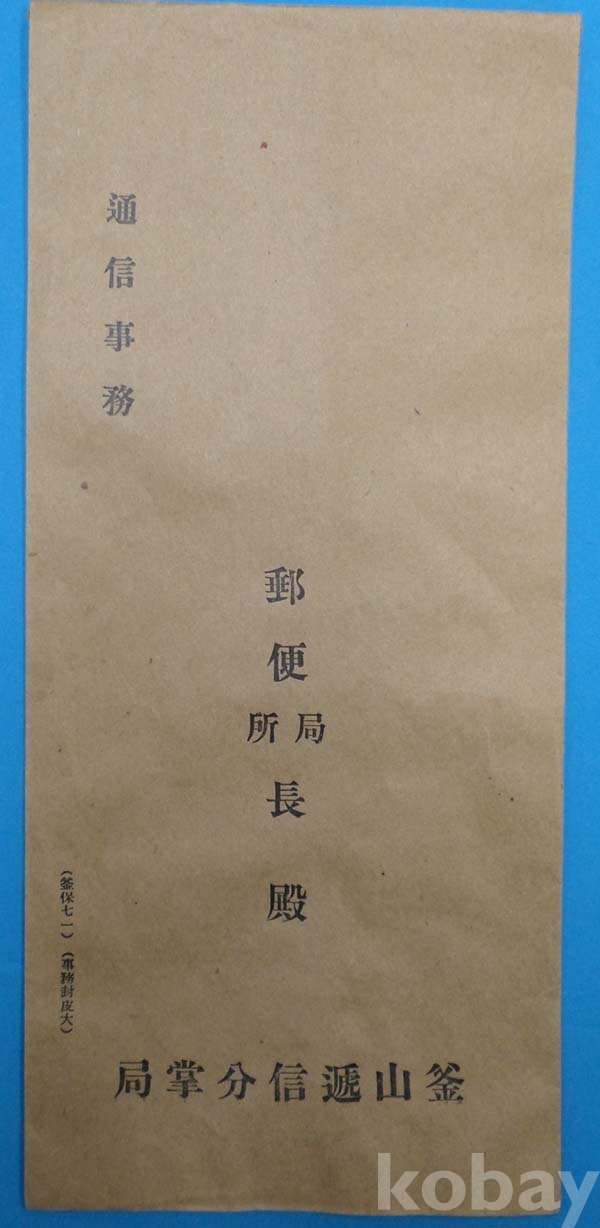 通信事務
郵便局所長殿
(釜保七一)(事務封皮大)
釜山遞信分掌局
kobay